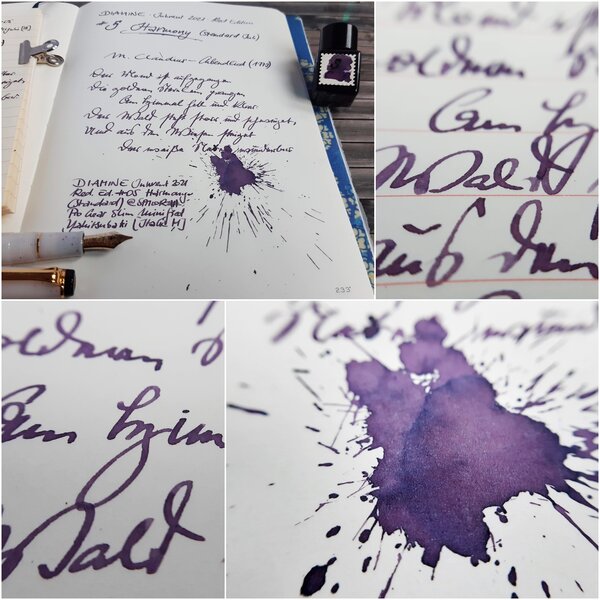 DIAMINE Inkvent 2021 Red Edition
#5 Harmony (Standard Ink)
M. Claudius – Abendlied (1779)
Der Mond ist aufgegangen
Die goldnen Sternlein prangen
Am Himmel hell und klar
Der Wald steht schwarz und schweiget
Und aus den Wiesen steiget
Der weiße Nebel wunderbar
DIAMINE Inkvent 2021
Red Ed. #05 Harmony
(Standard) @
Pro Gear Slim Mini
[Italic M]
233
oldnen
Am Hi
Wald
aus den
oldnen
Am Him
Wald